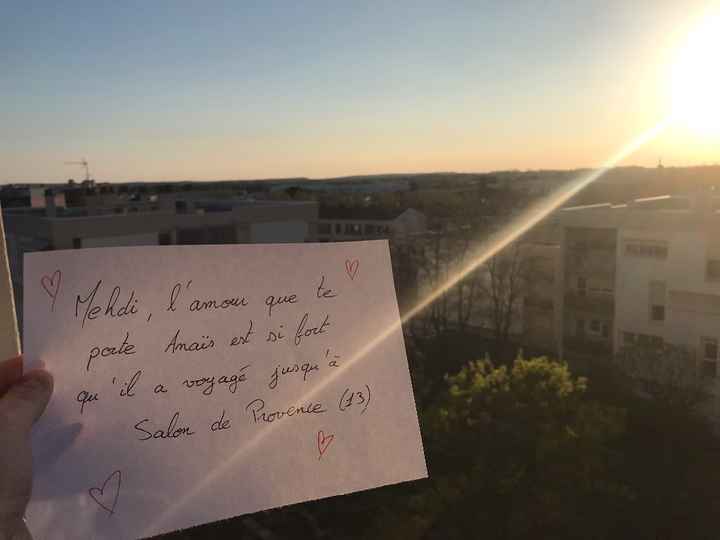 Mehdi, l'amour que te
porte Anaïs est si fort
qu'il a voyagé jusqu'à
Salon de Provence (13)